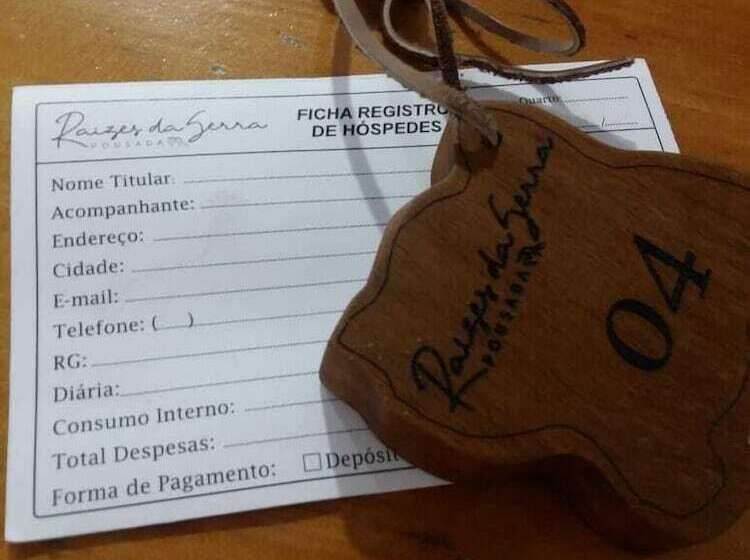 Raízes da Serra
POUSADA
FICHA REGISTRO
DE HÓSPEDES
Quarto
/
Nome Titular:
Acompanhante:
Endereço:
Cidade:
E-mail:
Telefone: ( )
RG:
Diária:
Consumo Interno:
Total Despesas:
Forma de Pagamento: ☐ Depósit
Raízes da Serra
POUSADA
04